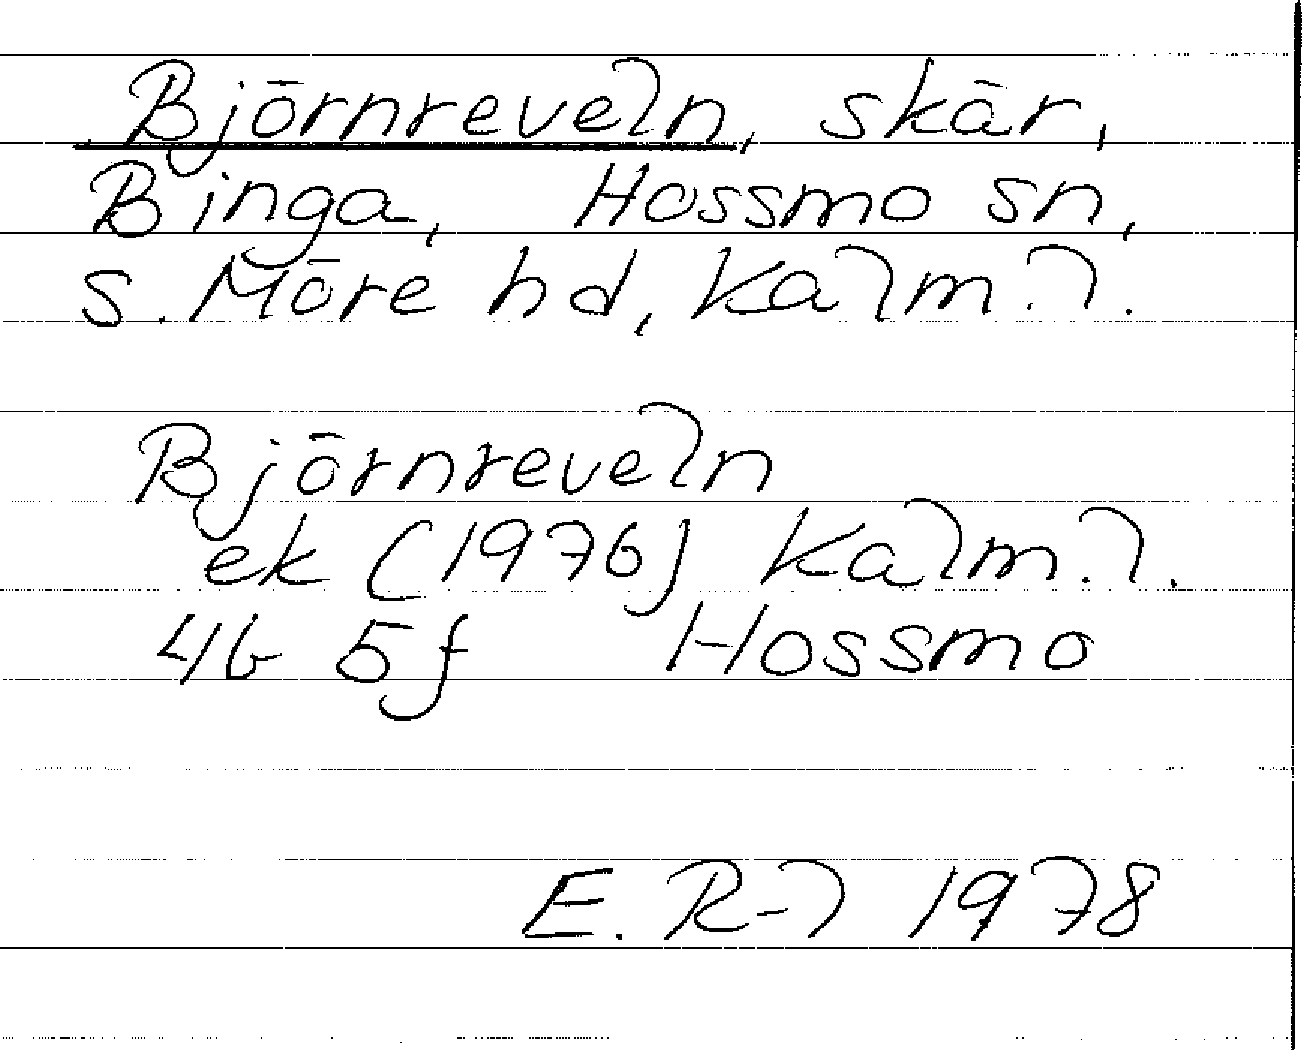 Björnreveln, skär,
Binga, Hossmo sn,
S. Möre hd, Kalm. l.
Björnreveln
ek (1976) Kalm. l.
4G 5f Hossmo
E. R-l 1978